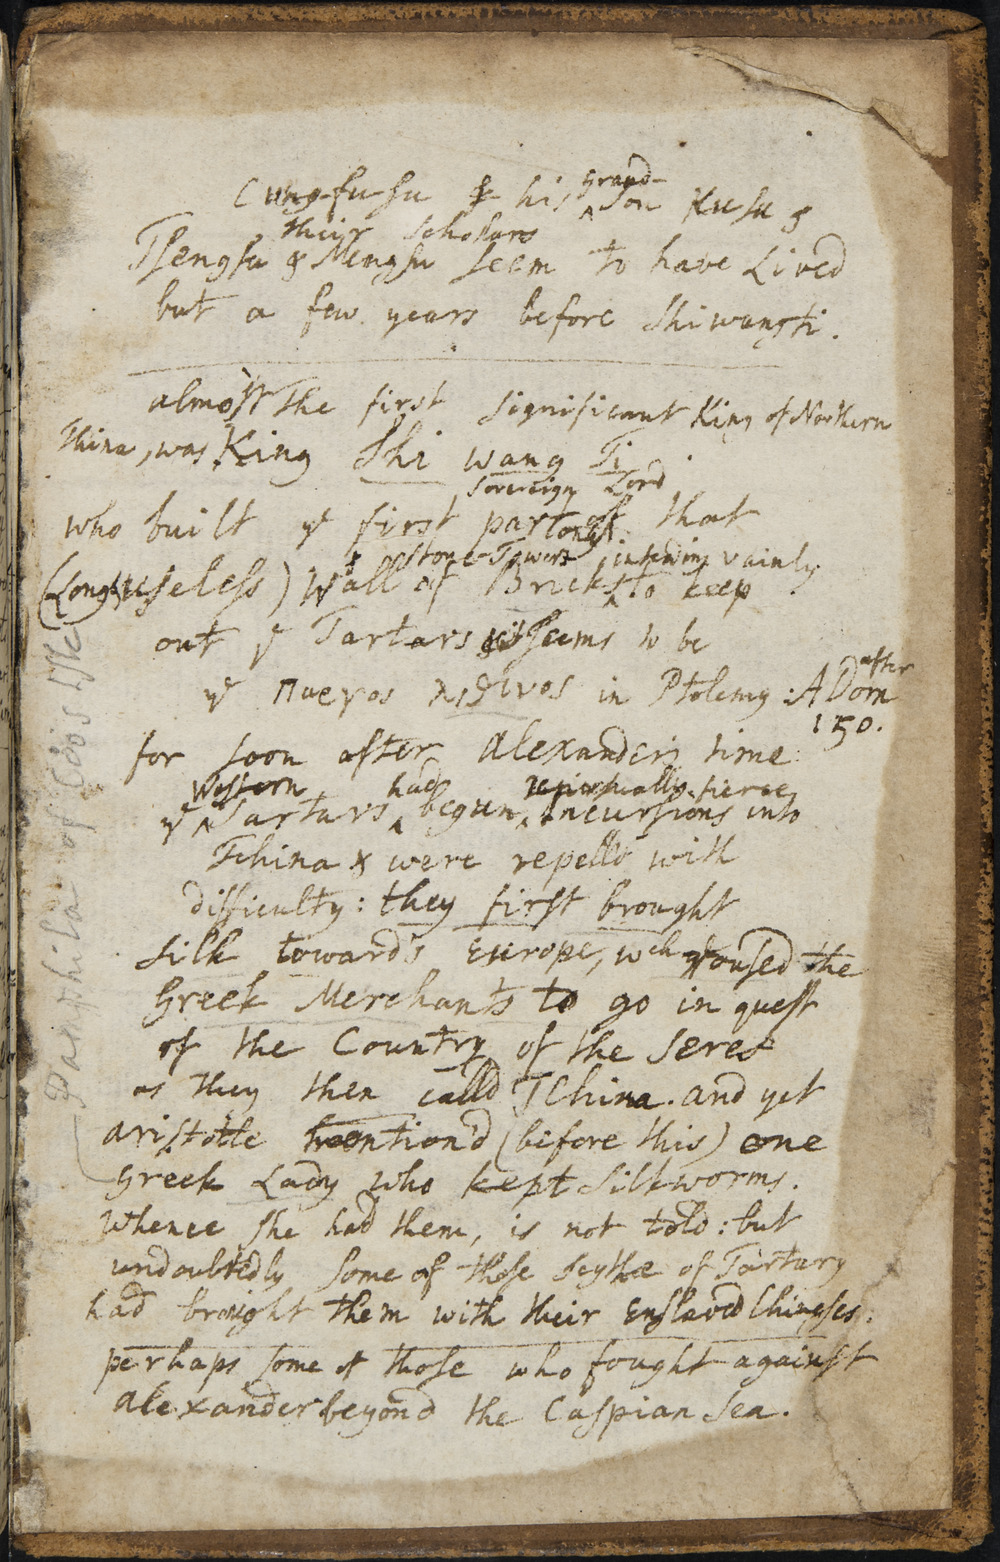 Cungfusu & his ^ grand-son Kusu &
their scholars
Tsengsu & Mengsu seem to have Lived
but a few years before Shiwangti.
almost The first significant King of Northern
Thina, was King Shi wang Ti
sovereign Lord
who built ye first part of that
stone Towers intending vainly
(Long useless) Wall of Bricks ^ to keep
out ye Tartars seems to be
ye πυργος λιθινος in Ptolemy : A Dom
after
150.
for soon after Alexander's time
Western had perpetually fierce
ye ^ Tartars ^ begun ^ incursions into
Tchina & were repelld with
difficulty : they first brought
silk toward's Europe, wch roused the
Greek Merchants to go in quest
of the Country of the Seres
as they then calld TChina. and yet
aristotle mention'd (before this) one
Greek Lady who kept silkworms.
Whence she had them, is not told : but
undoubtedly some of those Scythæ of Tartary
had brought them with their Enslaved Chineses.
perhaps some of those who fought against
Alexander beyond the Caspian Sea.
Pamphila of Cöos Isle